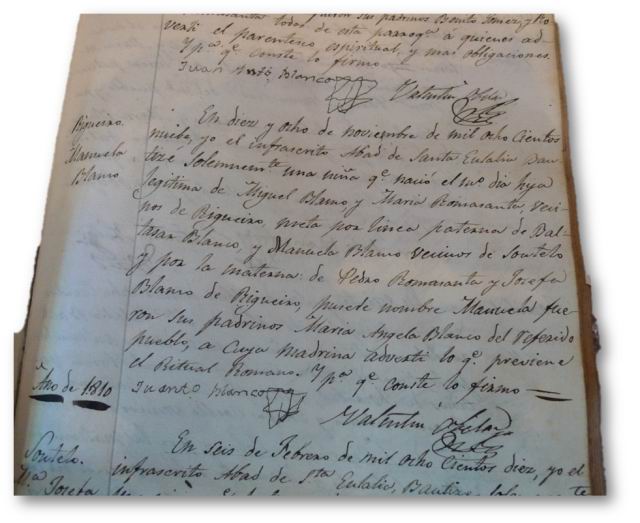 fueron sus padrinos Benito Gomez, y Ro
todos de esta parroqª. a quienes ad-
verti el parentesco espiritual, y mas obligaciones.
Y pª. qᵉ. conste lo firmo
Juan Antº. Blanco
Valentin
Rigueiro.
Manuela
Blanco
En diez y ocho de noviembre de mil ocho cientos
nuebe, yo el infrascrito Abad de Santa Eulalia Bau-
tizé Solemnemᵗᵉ. una niña qᵉ. nació el mº. dia hija
legitima de Miguel Blanco y Maria Romasanta, veci-
nos de Rigueiro, nieta por linea paterna de Bal-
tasar Blanco, y Manuela Blanco vecinos de Soutelo
y por la materna: de Pedro Romasanta y Josefa
Blanco de Rigueiro, pusele nombre Manuela fue-
ron sus padrinos Maria Angela Blanco del referido
pueblo, a cuya madrina adverti lo qᵉ. previene
el Ritual Romano. Y pª. qᵉ. conste lo firmo
Año de 1810
Blanco
Valentin
Soutelo.
Josefa
En seis de Febrero de mil ocho cientos diez, yo el
infrascrito Abad de Sᵗᵃ Eulalia, Bautize